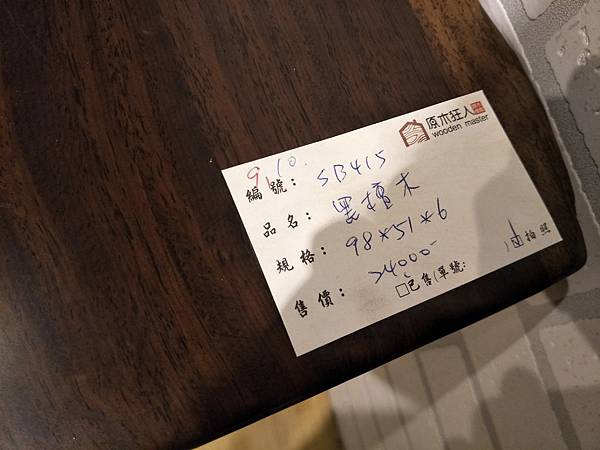 原木狂人
wooden master
9/10.
編號：SB415
品名：黑檀木
規格：98*51*6
售價：24000-
□已售(單號:
)拍照